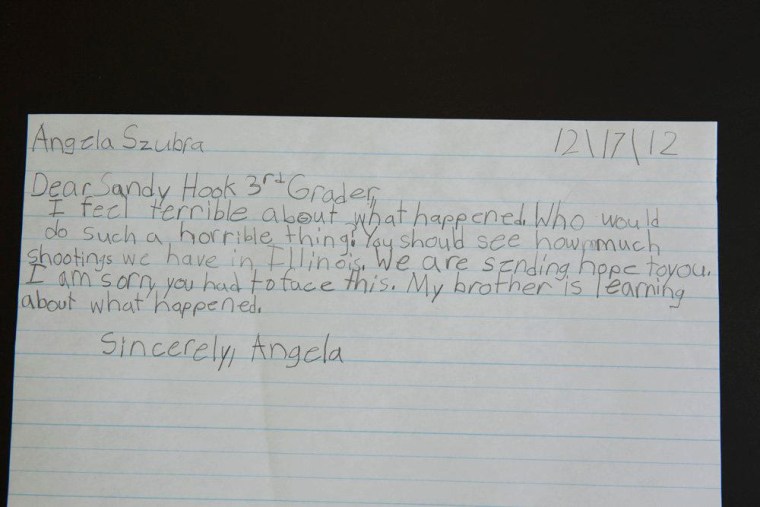 Angela Szubra 12\17\12
Dear Sandy Hook 3rd Grader,
I feel terrible about what happened. Who would
do such a horrible thing? You should see how much
shootings we have in Illinois. We are sending hope to you.
I am sorry you had to face this. My brother is learning
about what happened.
Sincerely, Angela